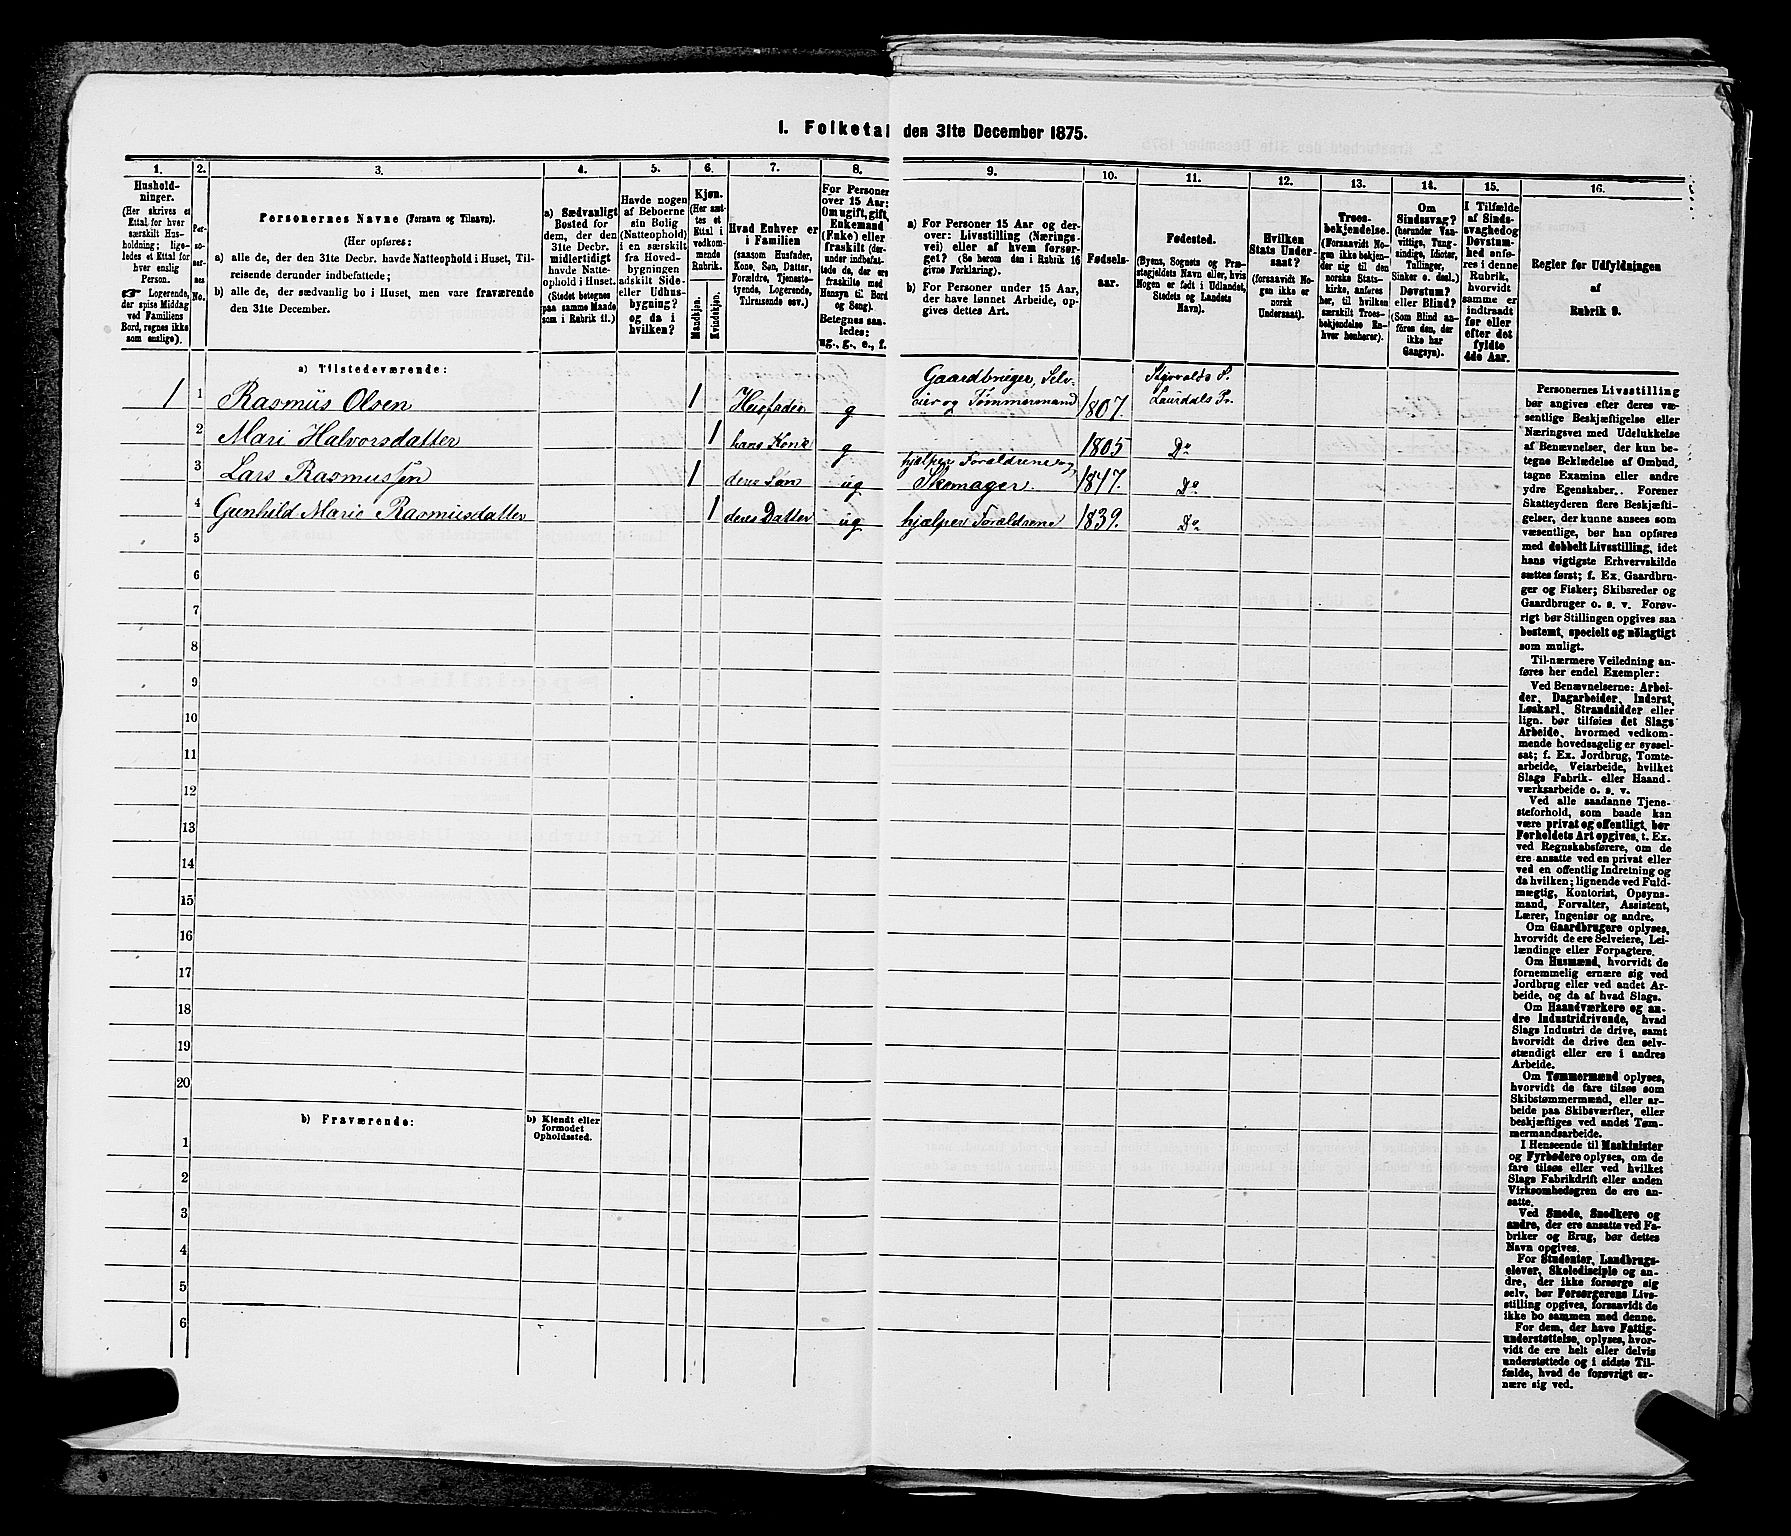 1. Folketal den 31te December 1875.
1. 2. 3. 4. 5. 6. 7. 8. 9. 10. 11. 12. 13. 14. 15. 16.
Hushold-
ninger.
(Her skrives et
Ettal for hver
særskilt Hus-
holdning; lige-
ledes et Ettal for
hver enslig
Person.
☞ Logerende,
der spise Middag
ved Familiens
Bord, regnes ikke
som enslige).
Per-
so-
nernes
No.
Personernes Navne (Fornavn og Tilnavn).
(Her opføres:
a) alle de, der den 31te Decbr. havde Natteophold i Huset, Til-
reisende derunder indbefattede;
b) alle de, der sædvanlig bo i Huset, men vare fraværende
den 31te December.
a) Sædvanligt
Bosted for
dem, der den
31te Decbr.
midlertidigt
havde Natte-
ophold i Huset.
(Stedet betegnes
paa samme Maade
som i Rubrik 11.)
Havde nogen
af Beboerne
sin Bolig
(Natteophold)
i en særskilt
fra Hoved-
bygningen
adskilt Side-
eller Udhus-
bygning?
og da i
hvilken?
Kjøn.
(Her sæt-
tes et
Ettal i
vedkom-
mende
Rubrik.
Mandkjøn.
Kvindekjøn.
Hvad Enhver er
i Familien
(saasom Husfader,
Kone, Søn, Datter,
Forældre, Tjeneste-
tyende, Logerende,
Tilreisende osv.)
For Personer
over 15 Aar:
Om ugift, gift,
Enkemand
(Enke) eller
fraskilt (der-
under indbefat-
tede de, der ere
fraskilte med
Hensyn til Bord
og Seng).
Betegnes saa-
ledes:
ug., g., e., f.
a) For Personer 15 Aar og der-
over: Livsstilling (Nærings-
vei) eller af hvem forsør-
get? (Se herom den i Rubrik 16
givne Forklaring).
b) For Personer under 15 Aar,
der have lønnet Arbeide, op-
gives dettes Art.
Fødsels-
aar.
Fødested.
(Byens, Sognets og Præ-
stegjeldets Navn eller, hvis
Nogen er født i Udlandet,
Stedets og Landets
Navn).
Hvilken
Stats Under-
saat?
(forsaavidt No-
gen ikke er
norsk
Undersaat).
Troes-
bekjendelse.
(Forsaavidt No-
gen ikke bekjen-
der sig til den
norske Stats-
kirke, anføres
her, til hvilken
særskilt Troes-
bekjendelse En-
hver henhører).
Om
Sindssvag?
(herunder Van-
vittige, Tung-
sindige, Idioter,
Tullinger,
Sinker o. desl.)
Døvstum?
eller Blind?
(Som Blind an-
føres den, der
ikke har
Gangsyn).
I Tilfælde
af Sinds-
svaghed og
Døvstum-
hed anfø-
res i denne
Rubrik,
hvorvidt
samme er
indtraadt
før eller
efter det
fyldte
4de Aar.
Regler for Udfyldningen
af
Rubrik 9.
a) Tilstedeværende:
1 1 Rasmus Olsen 1 Husfader g Gaardbruger, Selv-
eier og Tømmermand 1807. Laurdals Pr.
2 Mari Halvorsdatter 1 hans Kone g 1805 Do
3 Lars Rasmussen 1 deres Søn ug hjælper Forældrene og
Skomager. 1847. Do
4 Gunhild Marie Rasmusdatter 1 deres Datter ug hjælper Forældrene 1839. Do
5
6
7
8
9
10
11
12
13
14
15
16
17
18
19
20
b) Fraværende:
b) Kjendt eller
formodet
Opholdssted.
1
2
3
4
5
6
Personernes Livsstilling
bør angives efter deres væ-
sentlige Beskjæftigelse eller
Næringsvei med Udelukkelse
af Benævnelser, der kun be-
tegne Beklædelse af Ombud,
tagne Examina eller andre
ydre Egenskaber. Forener
Skatteyderen flere Beskjæfti-
gelser, der kunne ansees som
væsentlige, bør han opføres
med dobbelt Livsstilling, idet
hans vigtigste Erhvervskilde
sættes først; f. Ex. Gaardbru-
ger og Fisker; Skibsreder og
Gaardbruger o. s. v. Forøv-
rigt bør Stillingen opgives saa
bestemt, specielt og nøiagtigt
som muligt.
Til nærmere Veiledning an-
føres her endel Exempler:
Ved Benævnelserne: Arbei-
der, Dagarbeider, Inderst,
Løskarl, Strandsidder eller
lign. bør tilføies det Slags
Arbeide, hvormed vedkom-
mende hovedsagelig er syssel-
sat; f. Ex. Jordbrug, Tomte-
arbeide, Veiarbeide, hvilket
Slags Fabrik- eller Haand-
værksarbeide o. s. v.
Ved alle saadanne Tjene-
steforhold, som baade kan
være privat og offentligt, bør
Forholdets Art opgives, t. Ex.
ved Regnskabsførere, om de
ere ansatte ved en privat eller
ved en offentlig Indretning og
da hvilken; lignende ved Fuld-
mægtig, Kontorist, Opsyns-
mand, Forvalter, Assistent,
Lærer, Ingeniør og andre.
Om Gaardbrugere oplyses,
hvorvidt de ere Selveiere, Lei-
lændinge eller Forpagtere.
Om Husmænd, hvorvidt de
fornemmelig ernære sig ved
Jordbrug eller ved andet Ar-
beide, og da af hvad Slags.
Om Haandværkere og an-
dre Industridrivende, hvad
Slags Industri de drive, samt
hvorvidt de drive den selv-
stændigt eller ere i andres
Arbeide.
Om Tømmermænd oplyses,
hvorvidt de fare tilsøs som
Skibstømmermænd, eller ar-
beide paa Skibsværfter, eller
beskjæftiges ved andet Tøm-
mermandsarbeide.
I Henseende til Maskinister
og Fyrbødere oplyses, om de
fare tilsøs eller ved hvilket
Slags Fabrikdrift eller anden
Virksomhedsgren de ere an-
satte.
Ved Smede, Snedkere og
andre, der ere ansatte ved Fa-
briker og Brug, bør dettes
Navn opgives.
For Studenter, Landbrugs-
elever, Skoledisciple og an-
dre, der ikke forsørge sig
selv, bør Forsørgerens Livs-
stilling opgives, forsaavidt de
ikke bo sammen med denne.
For dem, der have Fattig-
understøttelse, oplyses, hvor-
vidt de ere helt eller delvis
understøttede og i sidste Til-
fælde, hvad de forøvrigt er-
nære sig ved.